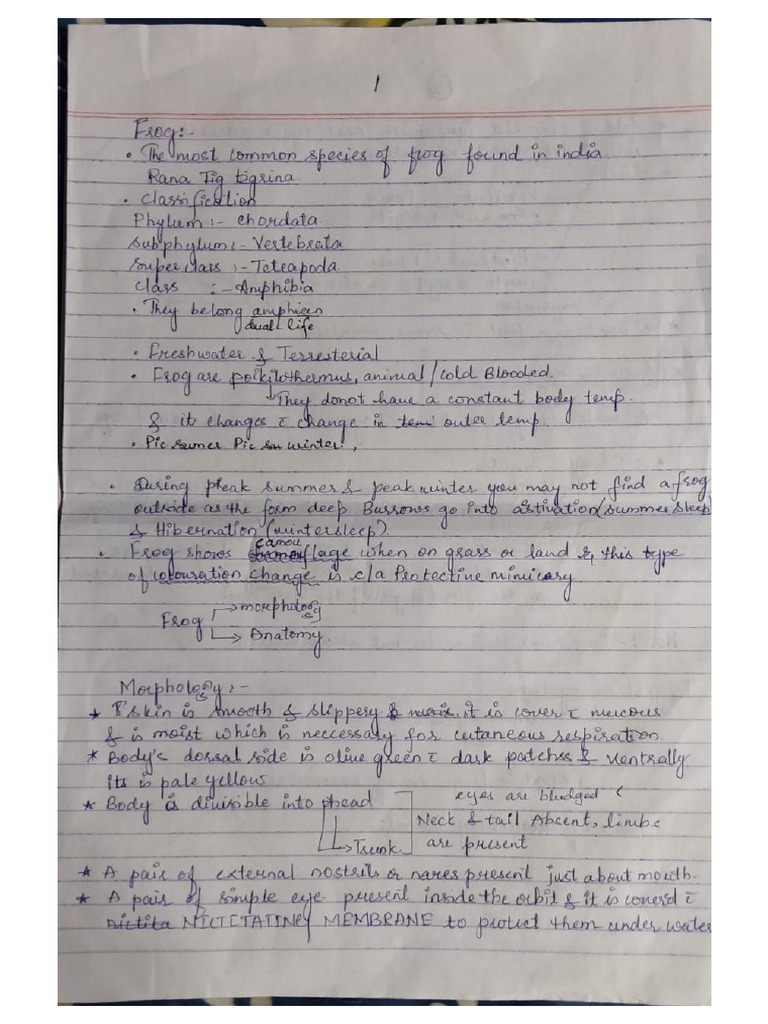 1
Frog:-
• The most common species of frog found in india
Rana Tig tigrina
• Classification
Phylum :- chordata
Subphylum :- Vertebrata
Superclass :- Teteapoda
Class :- Amphibia
• They belong
dual life
• Freshwater & Terresterial
• Frog are poikilothermus, animal / cold Blooded.
They donot have a constant body temp.
& it changes c̄ change in outer temp.
• Pic sumer Pic winter,
• During peak summer & peak winter you may not find a frog
outside as the form deep Burrows go into astivation (summer sleep)
& Hibernation (wintersleep).
• Frog shows camouflage when on grass or land &, this type
of colouration change is c/a Protective mimicary
Frog → morphology
→ Anatomy.
Morphology :-
★ Skin is smooth & slippery it is cover c̄ mucous
& is moist which is neccessary for cutaneous respiration.
★ Body's dorsal side is olive green c̄ dark patches & ventrally
its is pale yellow
★ Body is divisible into head eyes are bludged (
Neck & tail Absent, limbs
→ Trunk are present
★ A pair of external nostrils or nares present just about mouth.
★ A pair of simple eye present inside the orbit & it is coverd c̄
nictita NICTITATING MEMBRANE to protect them under water